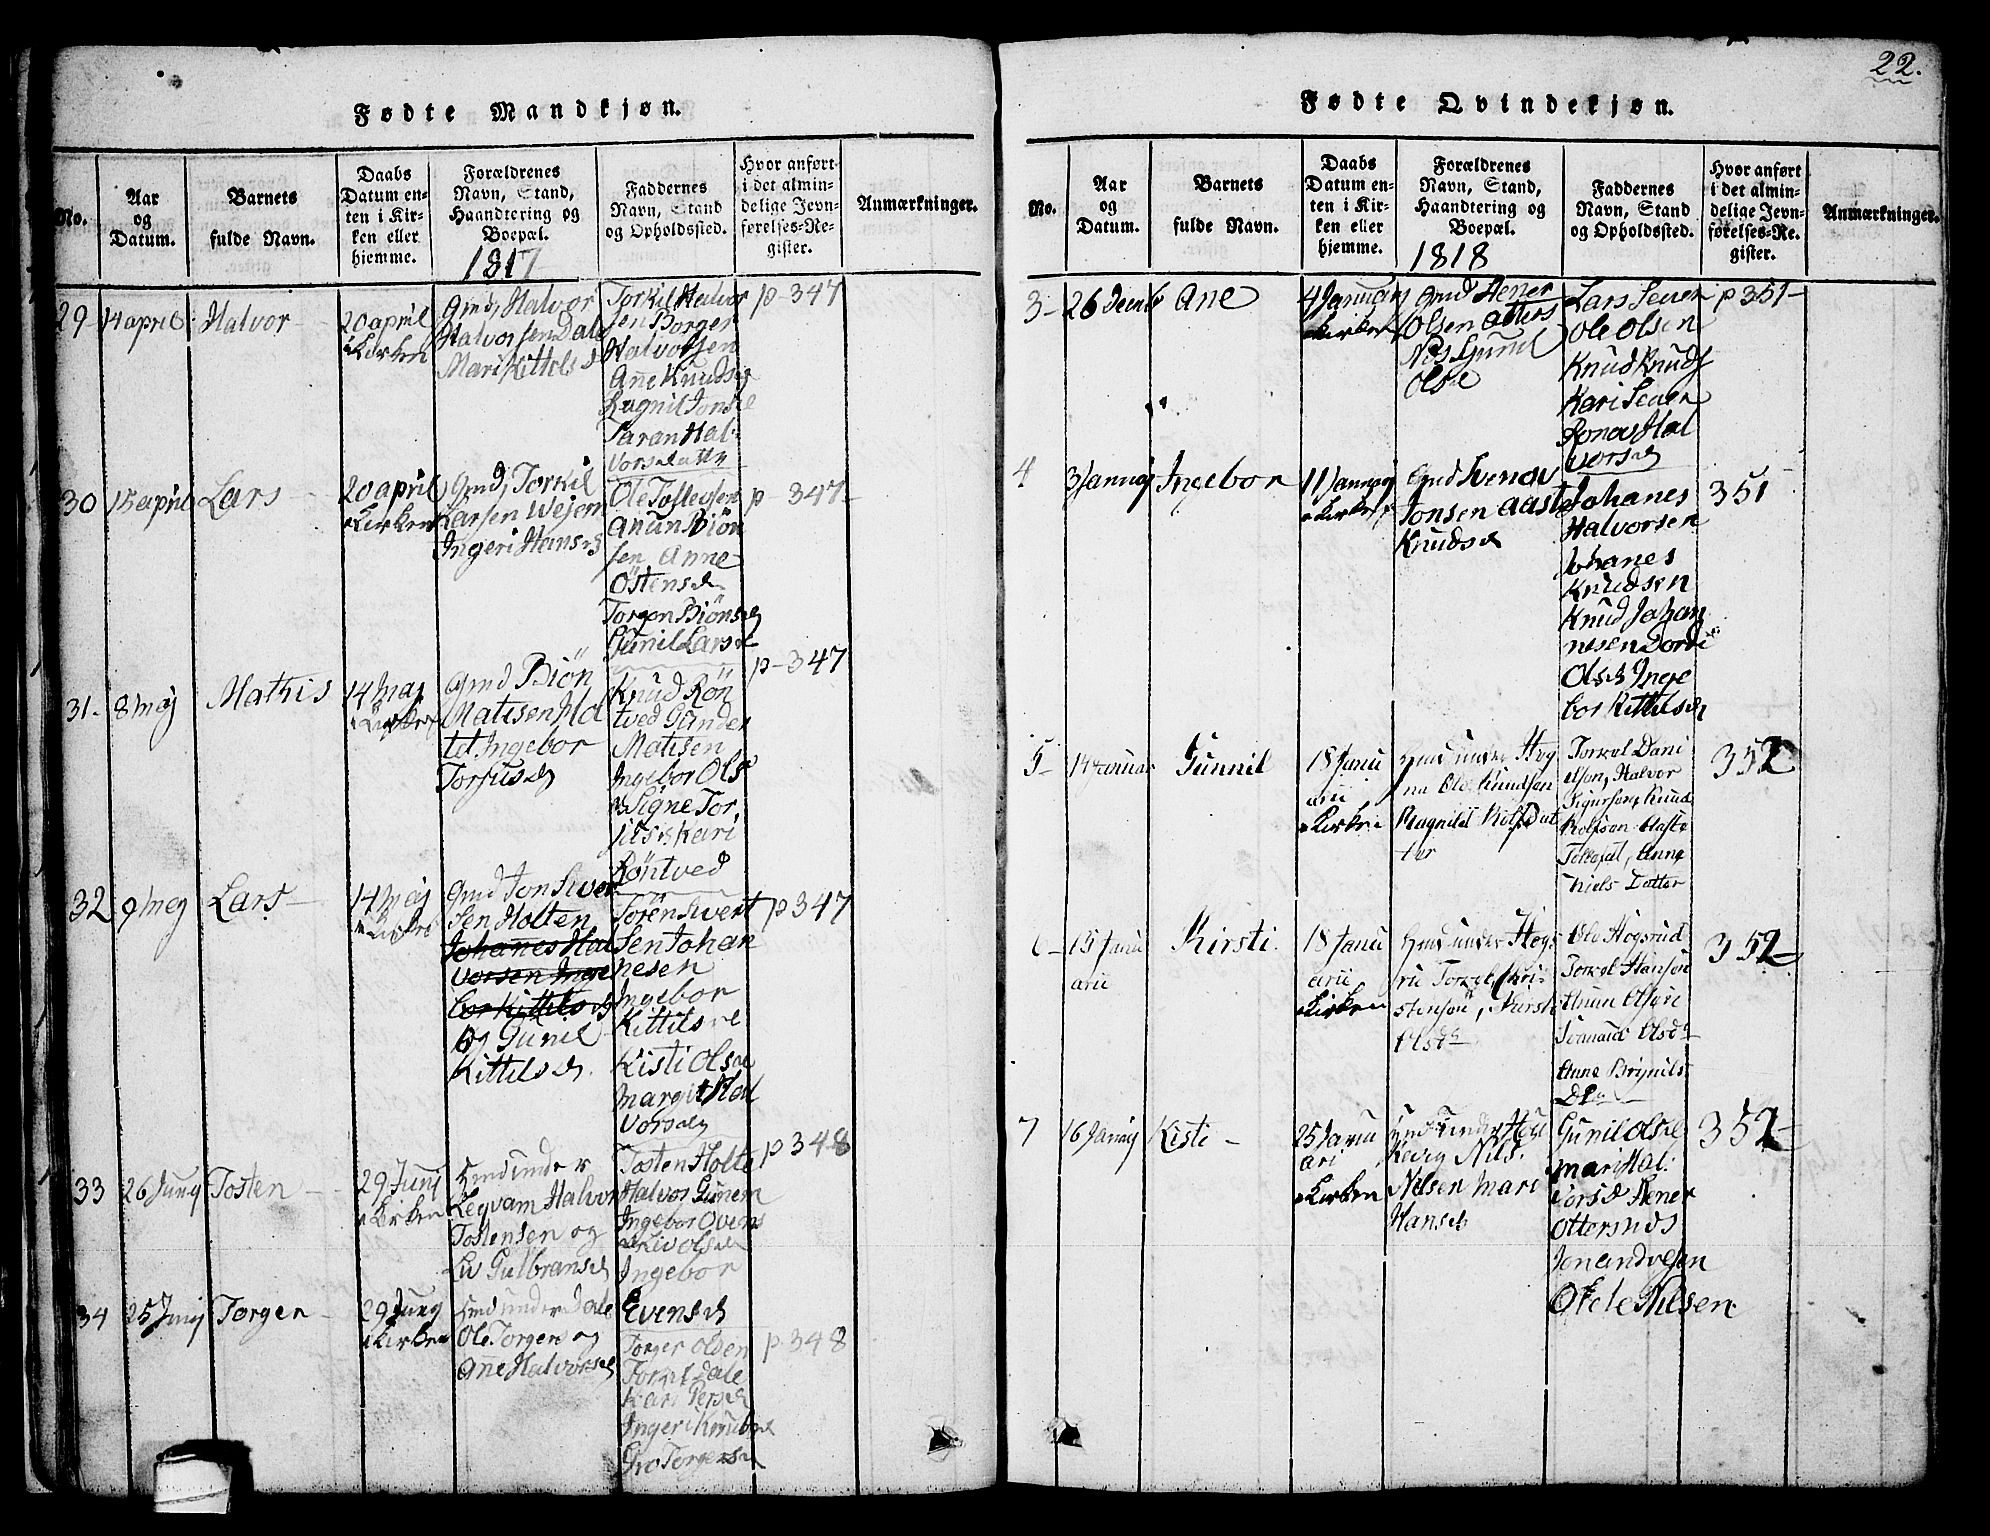 22.
Fødte Mandkjøn.
No.
Aar
og
Datum.
Barnets
fulde Navn.
Daabs
Datum en-
ten i Kir-
ken eller
hjemme.
Forældrenes
Navn, Stand,
Haandtering og
Boepæl.
1817
Faddernes
Navn, Stand
og Opholdssted.
Hvor anført
i det almin-
delige Jevn-
førelses-Re-
gister.
Anmærkninger.
29 14 april Halvor
20 april
i Kirken
Gmd, Halvor
Halvorsen Dale
Mari Kittelsd
Torkil Halvor
sen Borger
Halvorsen
Ane Knudsd
Ragnil Jonsd
Taran Hal-
vorsd
p-347
30 15 april Lars
20 april
i Kirken
Gmd, Torkil
Larsen Wejem
Ingeri Hansd
Ole Tollefsen
Anun Biøn
sen Anne
Østensd
Torgon Biønsd
Gunil Larsd
p-347
31- 8 Maj Mathis
14 Maj
i Kirken
Gmd Biøn
Matisen Hol
tet Ingebor
Torjusd
Knud Røn
tved Gunder
Matisen
Ingebor Ols
d Signe Tor
jusd Kari
Røntved
p-347
32 9 Mej Lars
14 Maj
i Kirke
Gmd Jon Siver
Sen Holten
Johanes Hal
vorsen Inge
bor Kittilsd
og Gunil
Kittilsd
Sören Sivert
Sen Johan
nesen
Ingebor
Kittilsd
Kisti Olsd
Margit Hal
Vorsd
p 347
33 26 Juny Tosten
29 Junj
i Kirken
Gmd under
Legvam Halvor
Tostensen og
Liv Gulbransd
Tosten Holte
Halvor Gunem
Ingebor Ovens
d Liv Olsd
Ingebor
Evensd
p 348
34 25 Junj Torger
29 Juny
i Kirken
Gmd under Dale
Ole Torgers og
Ane Halvorsd
Torger Olsen
Torkil Dale
Kari Persd
Ingeri Knudsd
Gro Torgersd
p-348
Fødte Qvindekjøn.
No.
Aar
og
Datum.
Barnets
fulde Navn.
Daabs
Datum en-
ten i Kir-
ken eller
hjemme.
Forældrenes
Navn, Stand,
Haandtering og
Boepæl.
1818
Faddernes
Navn, Stand
og Opholdssted.
Hvor anført
i det almin-
delige Jevn-
førelses-Re-
gister.
Anmærkninger.
3- 26 Decmb Ane
4 Januarj
i Kirken
Gmd Hener
Olsen Otters
Nes Gunil
Olsd
Lars Sever
Ole Olsen
Knud Knuds
Kari Sever
Hal
vorsd
p 351-
4 3 Januarj Ingebor
11 Januarj
i Kirken
Gmd Svenov
Jonsen Aaste
Knudsd
Johanes
Halvorsen
Johanes
Knudsen
Knud Johan
nesen Dorte
Olsd Inge
bor Kittilsd
351
5- 14 Januar Gunnil
18 Janu
arii
i Kirke
Gmd under Høg
nu Ole Knudsen
Ragnild Rolfs Dat
ter
Torkel Dani
elsen, Halvor
Sigursen, Knud
Rolfsen Aaste
Anne
Niels Datter
352
6- 15 Janu
arii
Kirsti
18 Janu
arii
i Kirken
Gmd under Høgs
ru Torkel Kri
stensen, Kirsti
Olsd
Ole Høgsrud
Torkel Hansen
Anun Olsen
Olsd
Anne Brynils
352
7 16 Januarj Kisti -
25 Janu
ari
i Kirken
Gmd under Høg
Nils
Nilsen Mari
Hansd
Gunil Olsd
Mari Hal:
vorsd Hener
Ottersnes
Jon Andresen
Nilsen.
352-